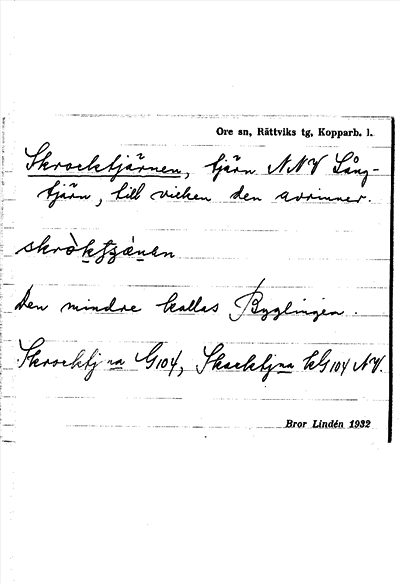 Ore sn, Rättviks tg, Kopparb. l.
Skrocktjärnen, tjärn NNV Lång-
tjärn, till vilken den avrinner.
Den mindre kallas Bygglingen.
Skrocktj na G104, Skocktjna kG104 NV.
Bror Lindén 1932